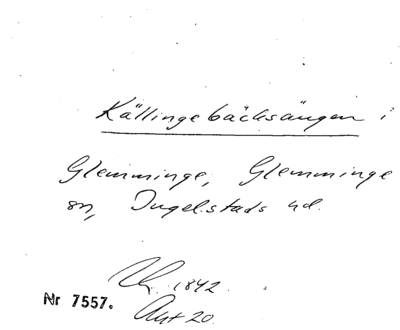 Källingebäcksängen i
Glemminge, Glemminge
sn, Ingelstads hd.
1842.
Nr 7557.
Akt 20